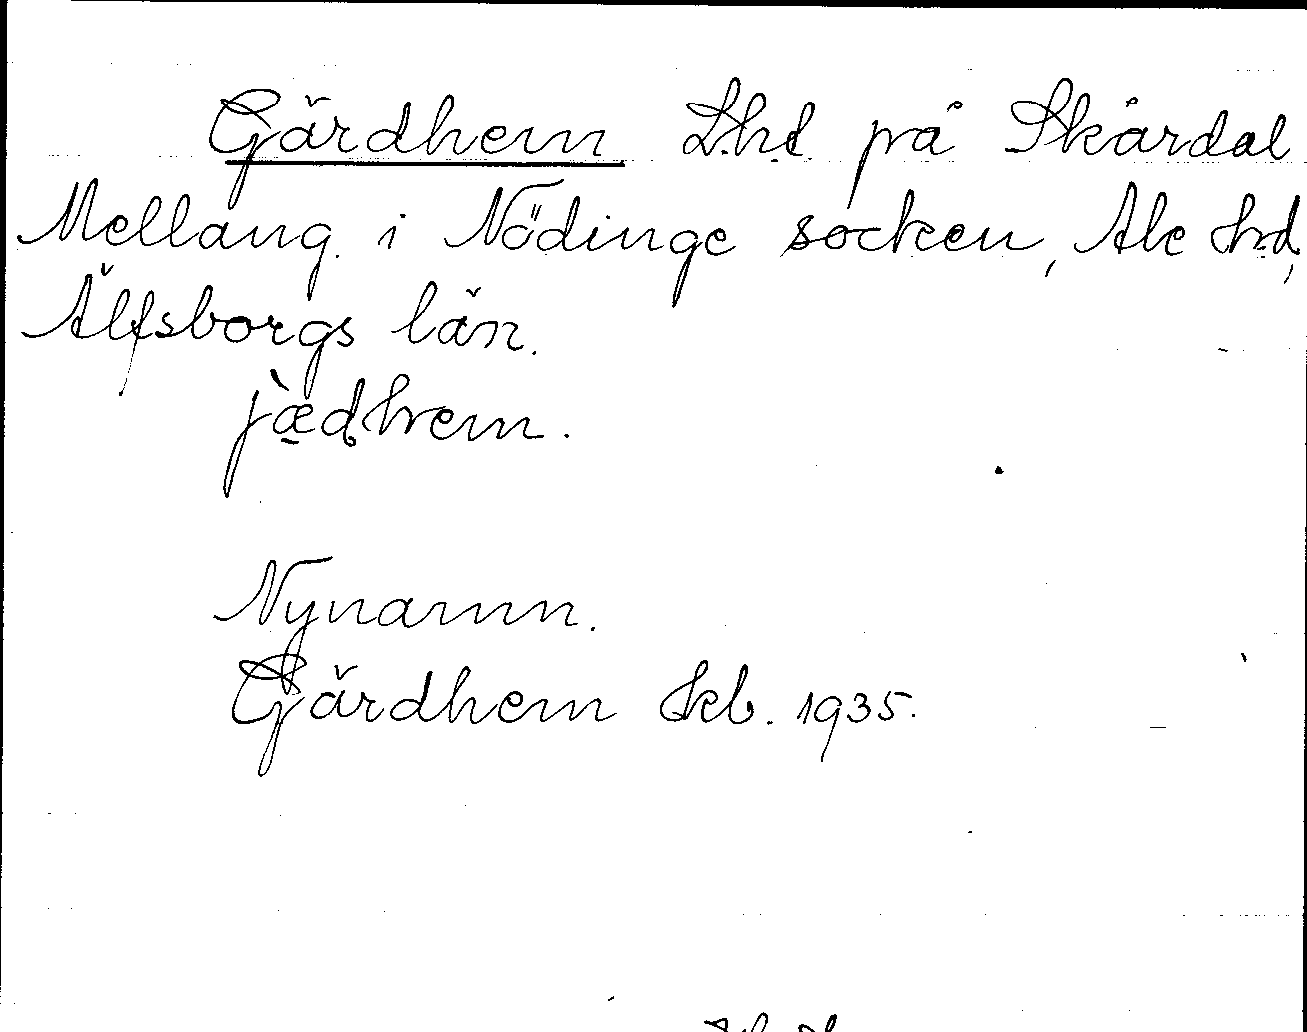 Gärdhem L.h.d. på Skårdal
Mellang. i Nödinge socken, Ale h.d,
Älfsborgs län.
jæ̀dhem.
Nynamn.
Gärdhem Kb. 1935.